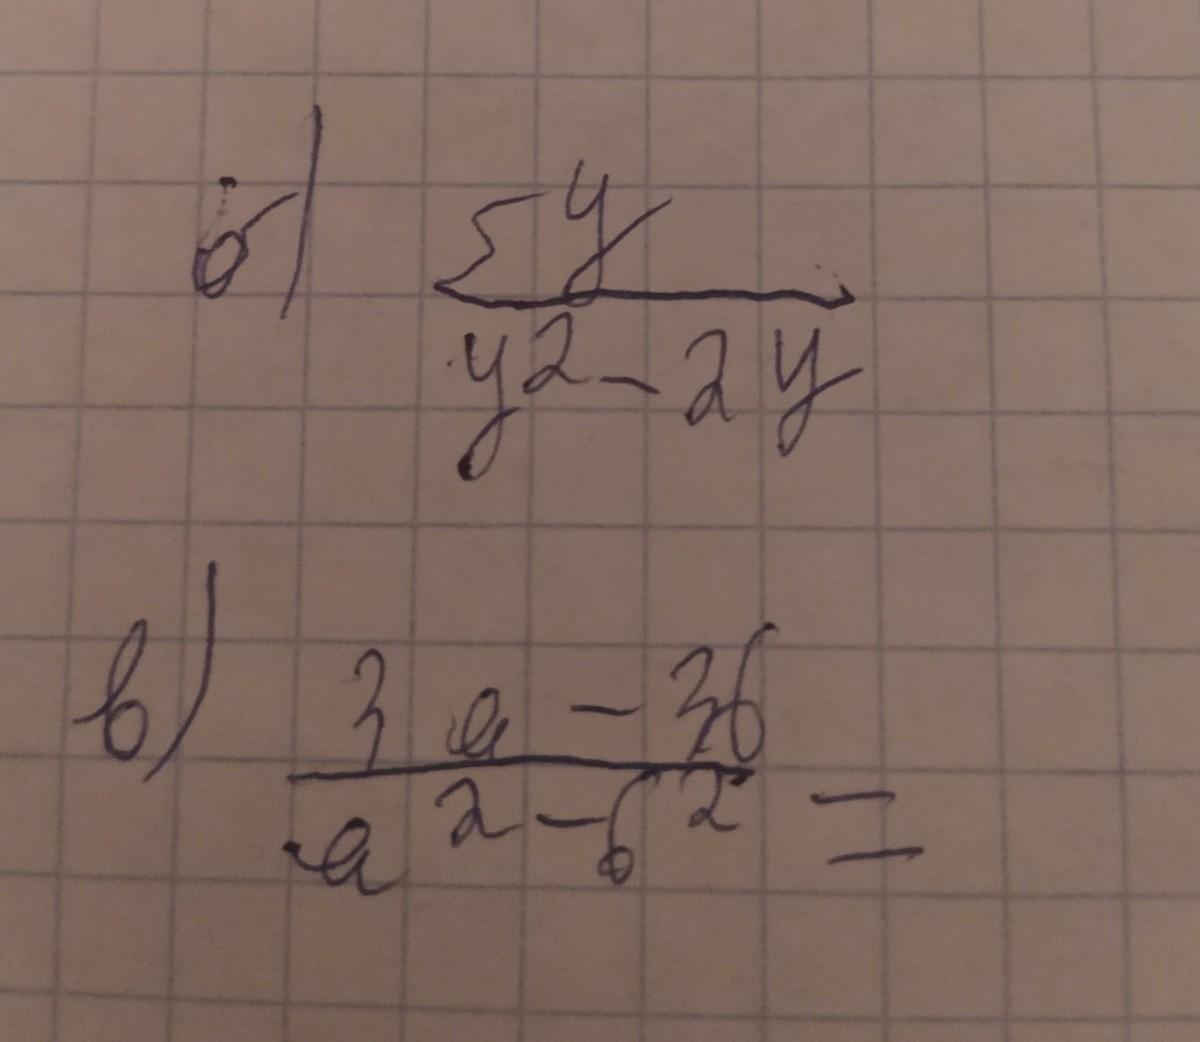 б) 5y
y² - 2y
в) 3a - 3b
a² - b² =